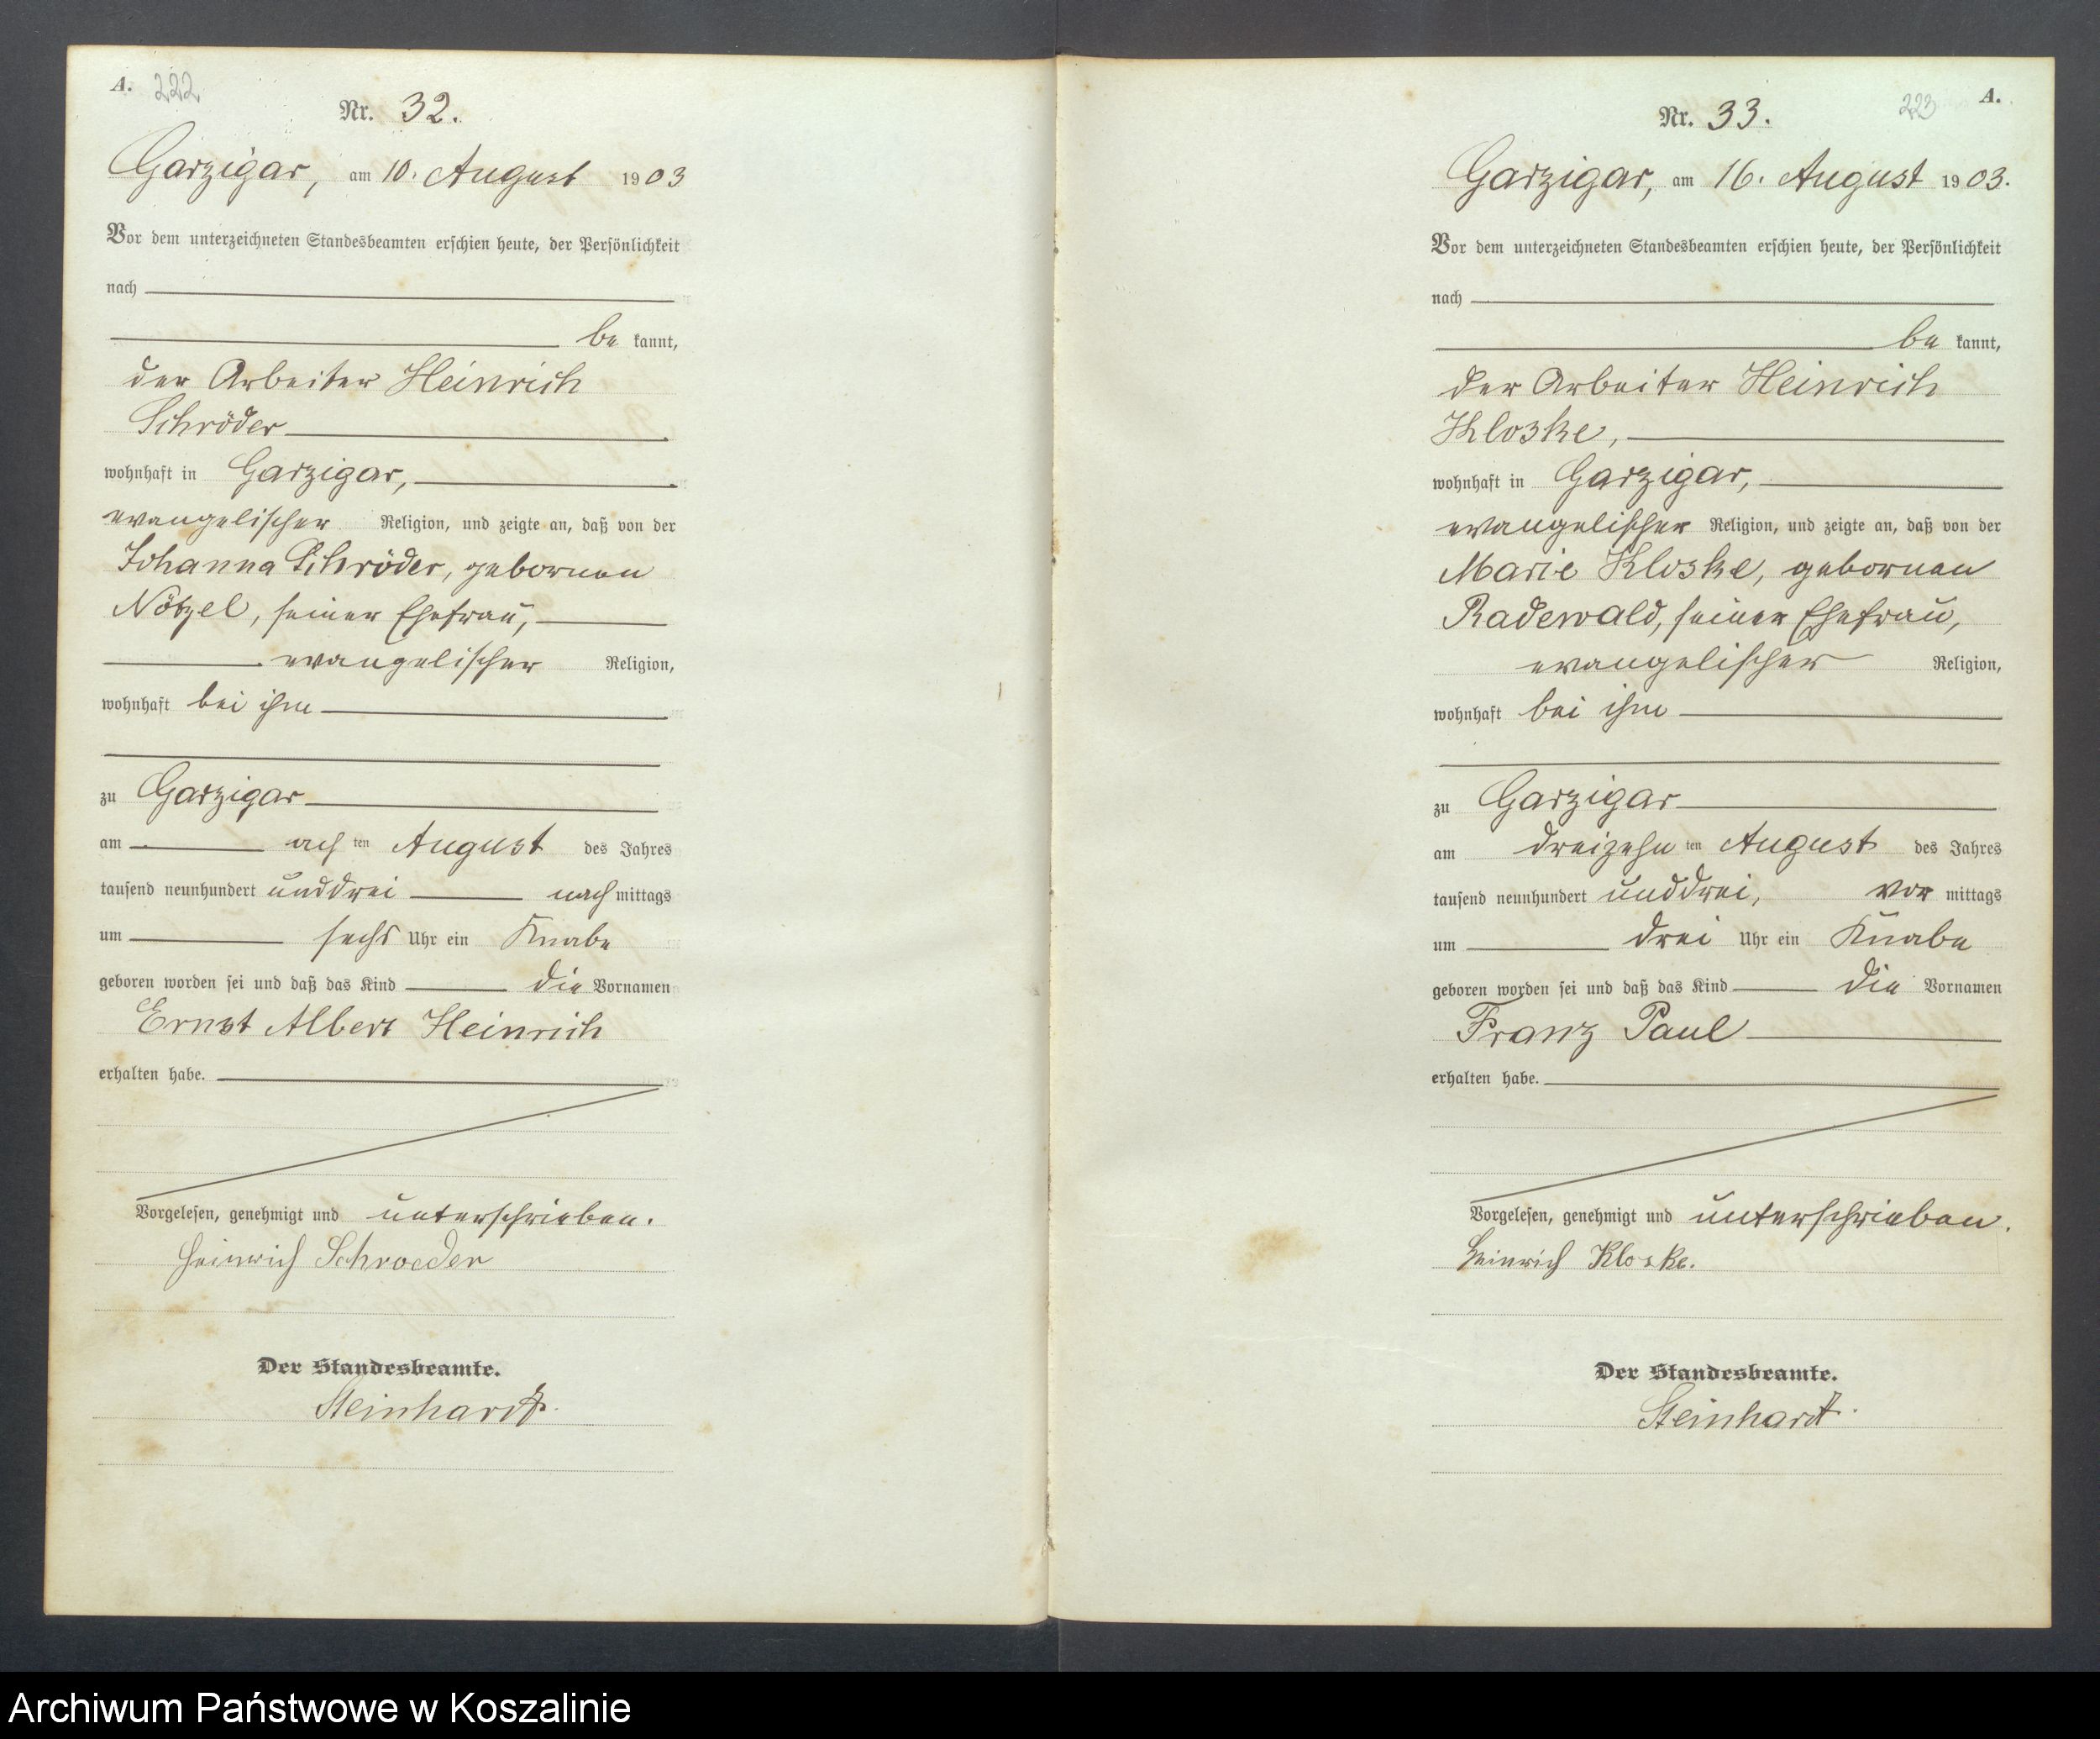 A. 222
Nr. 32.
Garzigar, am 10. August 1903
Vor dem unterzeichneten Standesbeamten erschien heute, der Persönlichkeit
nach
be kannt,
der Arbeiter Heinrich
Schröder
wohnhaft in Garzigar,
evangelischer Religion, und zeigte an, daß von der
Johanna Schröder, gebornen
Nötzel, seiner Ehefrau,
evangelischer Religion,
wohnhaft bei ihm
zu Garzigar
am achten August des Jahres
tausend neunhundert unddrei nachmittags
um sechs Uhr ein Knabe
geboren worden sei und daß das Kind die Vornamen
Ernst Albert Heinrich
erhalten habe.
Vorgelesen, genehmigt und unterschrieben.
Heinrich Schroeder
Der Standesbeamte.
Steinhardt.
223 A.
Nr. 33.
Garzigar, am 16. August 1903.
Vor dem unterzeichneten Standesbeamten erschien heute, der Persönlichkeit
nach
be kannt,
der Arbeiter Heinrich
Kloske,
wohnhaft in Garzigar,
evangelischer Religion, und zeigte an, daß von der
Marie Kloske, gebornen
Radewald, seiner Ehefrau,
evangelischer Religion,
wohnhaft bei ihm
zu Garzigar
am dreizehnten August des Jahres
tausend neunhundert unddrei, vor mittags
um drei Uhr ein Knabe
geboren worden sei und daß das Kind die Vornamen
Franz Paul
erhalten habe.
Vorgelesen, genehmigt und unterschrieben.
Heinrich Kloske.
Der Standesbeamte.
Steinhardt.
Archiwum Państwowe w Koszalinie